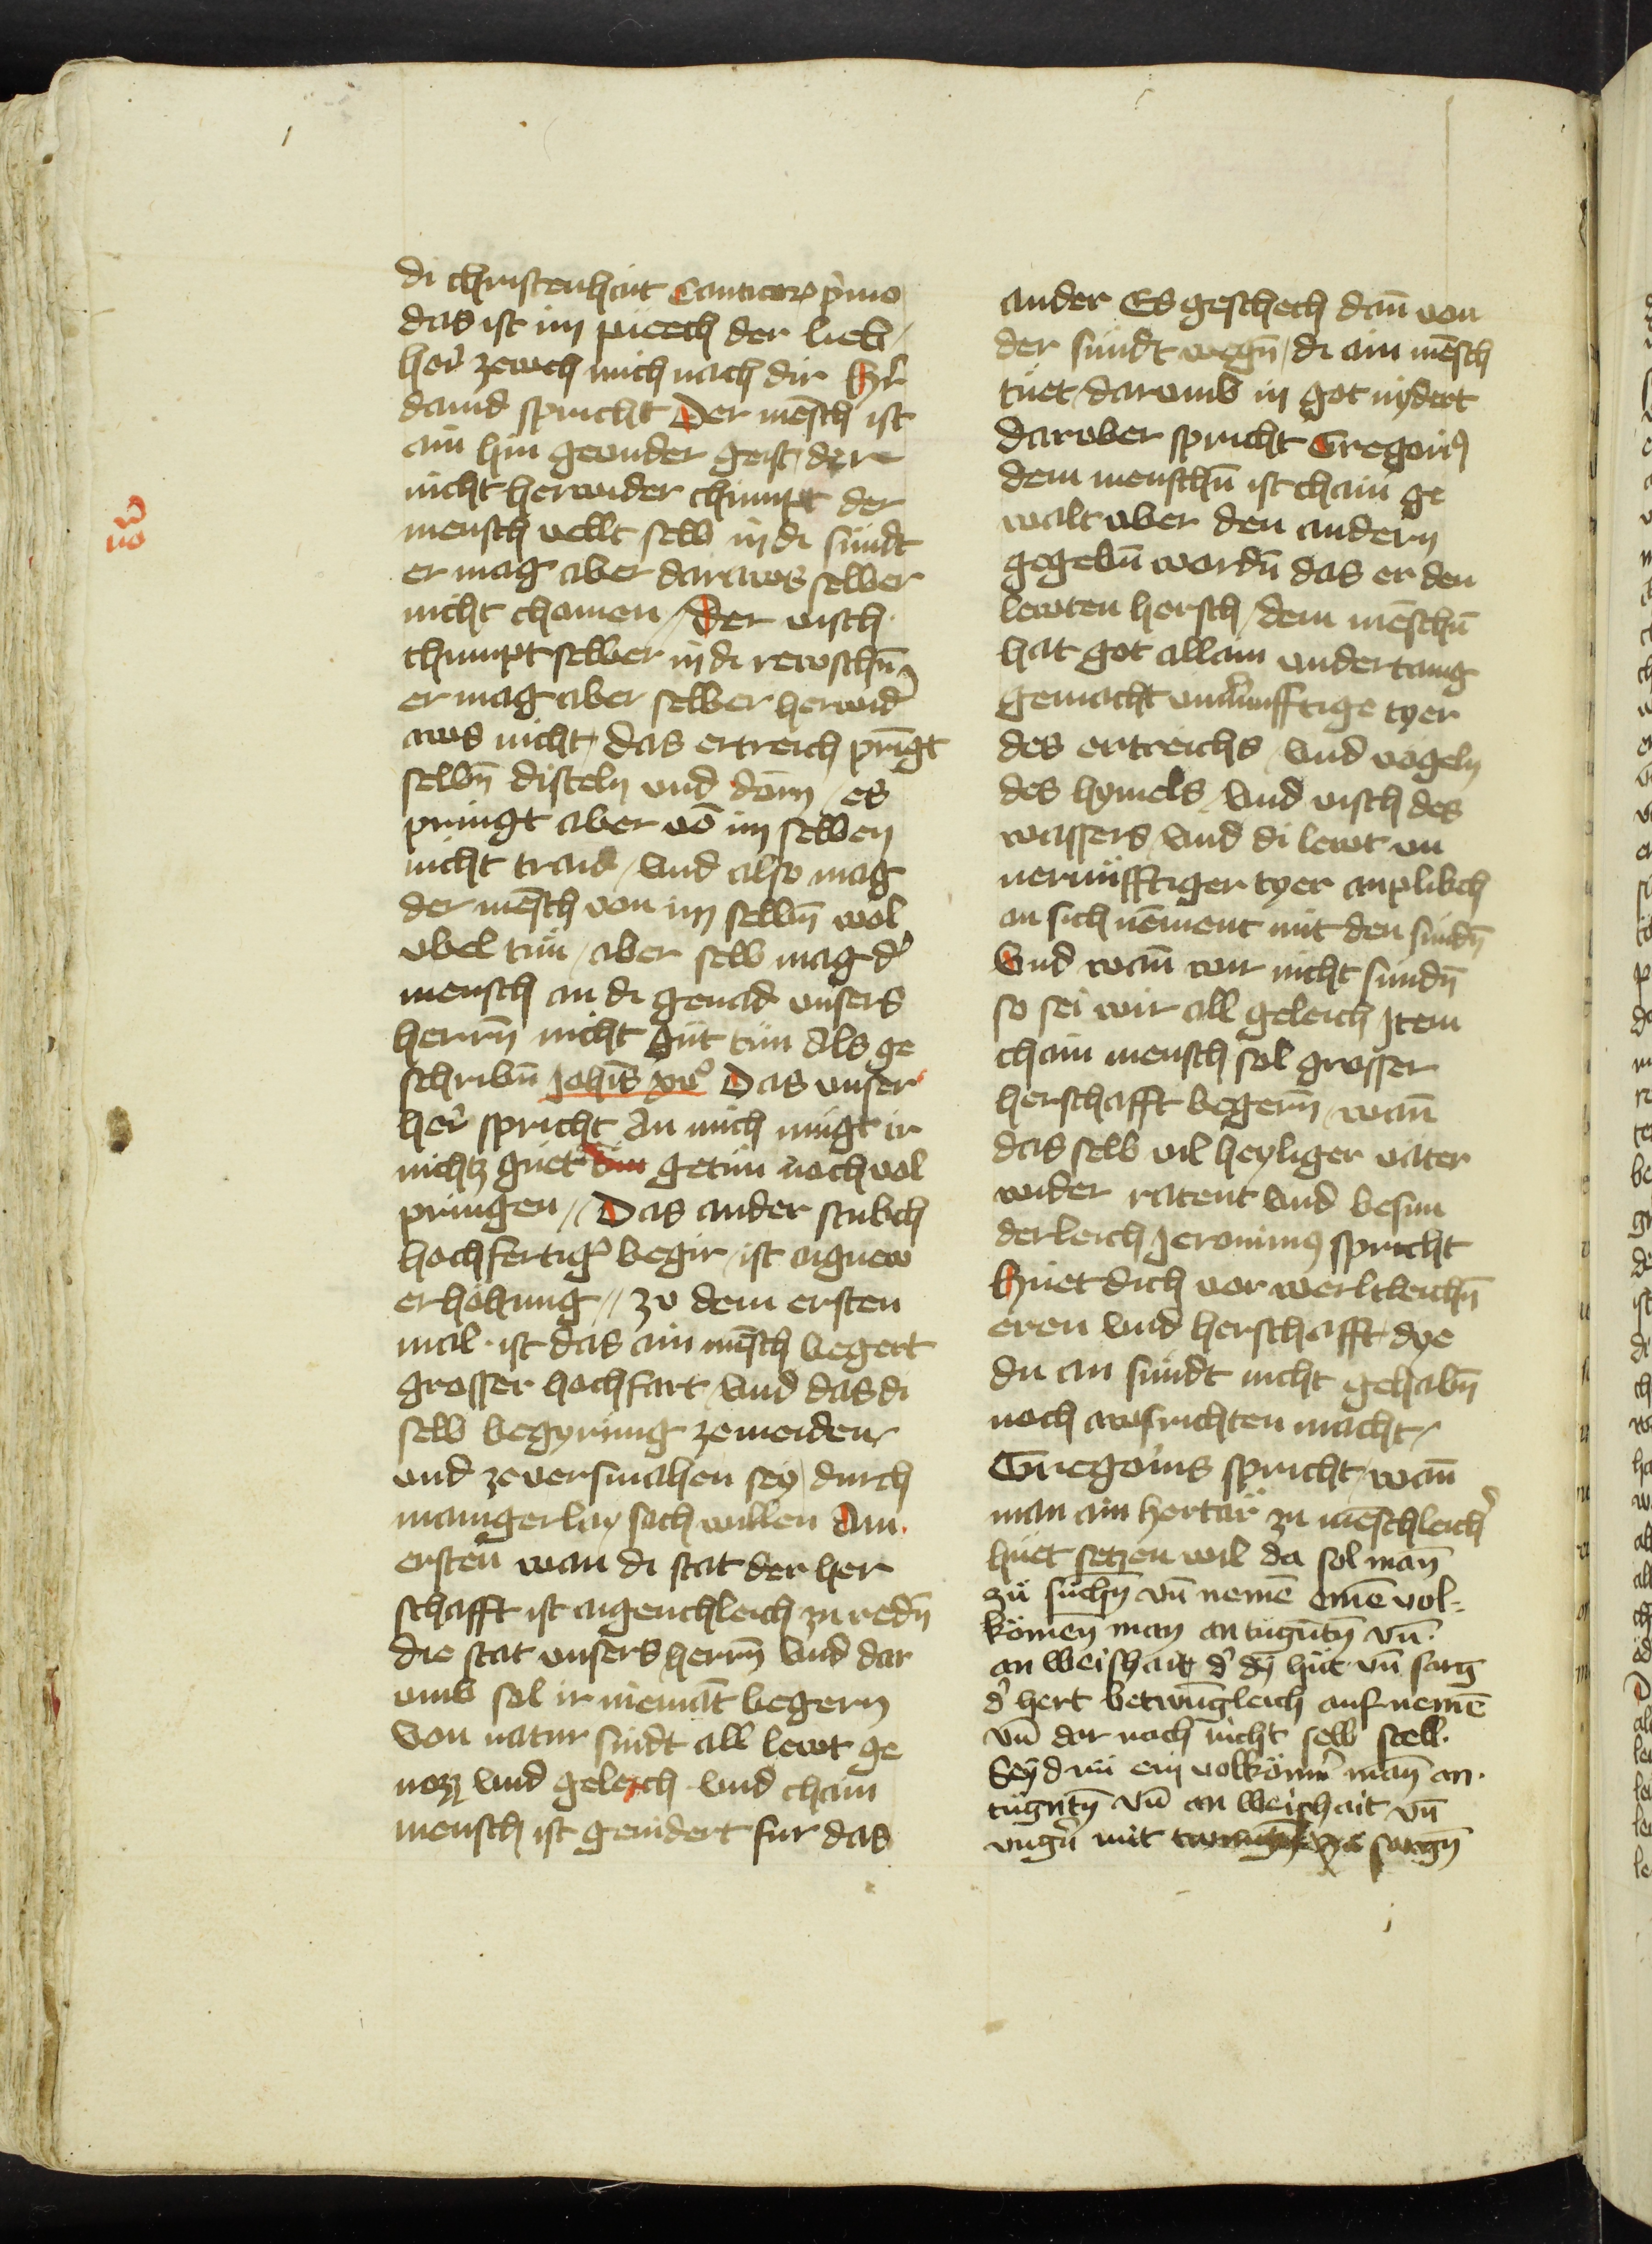 di christenhait Canticor p̾mo
das ist im puech der lieb /
her̾ zewch mich nach dir Her̾
dauid spricht Der mēsch ist
ain hin geunder geist / der
nicht herwider chumpt der
mensch vellt selb in di sündt
er mag aber daraws selber
nicht chomen / Der visch
chumpt selber in di rewschn̄
er mag aber selber herwid̾
aws nicht / das ertreich pringt
selbn̄ disteln vnd dörn / es
pringt aber vō im selben
nicht traid / vnd also mag
der mēsch von im selbn̄ wol
vbel tün / aber selb mag d̾
mensch an di genad vnsers
herrn̄ nicht güt tün Als ge
schribn̄ Joh̄is xvͦ Das vnser
her̾ spricht An mich mügt ir
nichtz guetz getün noch vol
pringen // Das ander stukch
hochfertig̾ begir / ist aignew
erhöhung // zv dem ersten
mal · ist das ain mēsch begert
grosser hochfart / vnd das di
selb begyrung zemeiden
vnd ze versmahen sey / durch
maingerlay sach willen Am
ersten wan di stat der her
schafft ist aigenchleich zu redn̄
die stat vnsers herrn̄ vnd dar
vmb sol ir niemāt begern
Von natur sindt all lewt ge
nozz vnd geleich vnd chain
mensch ist genidert fur das
ṽ
no
ander Es geschech dan̄ von
der sündt wegn̄ / di ain mēsch
tuet / darumb in got nydert
Darvber spricht Gregorius
dem menschn̄ ist chain ge
walt vber den andern
gegebn̄ wordn̄ das er den
lewten hersch / dem mēschn̄
hat got allain vndertanig
gemacht vnu̾nufftige tyer
des ertreichs / vnd vögeln
des hymels / vnd visch des
wassers / vnd di lewt vn
uernüfftiger tyer anplikch
an sich nēment mit den sündn̄
Vnd wan̄ wir nicht sundn̄
so sei wir all geleich Item
chain mensch sol grosser
herschafft begern̄ / wan̄
das selb vil heyliger väter
wider ratent vnd besun
derleich Jeronimus spricht
Huet dich vor werltleichn̄
eren vnd herschafft dye
du an sündt nicht gehabn̄
noch awsrichten macht /
Gregorius spricht / wan̄
man ain hertär zu mēschleich̾
huet setzen wil da sol man̄
zü suchn̄ vn̄ nemē einē vol-
kömen man an tugūtn̄ vn̄
an weishait d̾ dy hut vn̄ sarg
d̾ hert betwūgleich aufnemē
vn̄ dar nach nicht selb stell ·
Seyd nü ein volkömn̾ man̄ an
tugntn̄ vn̄ an weishait vn̄
vngn̾ mit sorgn̄